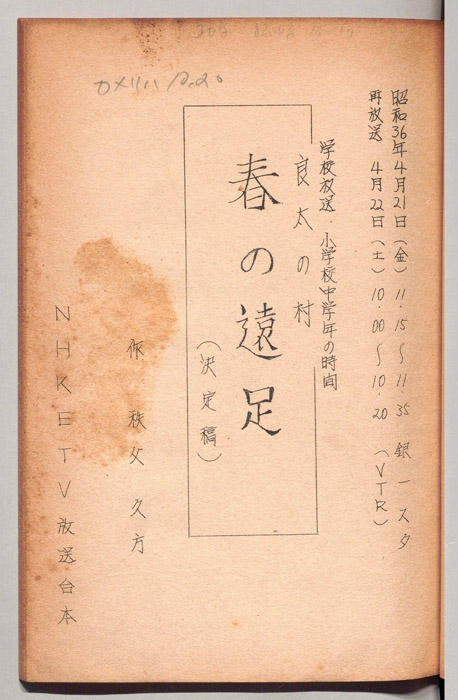 昭和36年4月21日（金）11.15～11.35 銀一スタ
再放送 4月22日（土）10.00～10.20（VTR）
学校放送・小学校中学年の時間
良太の村
春の遠足
（決定稿）
作 秩父久方
NHKETV放送台本